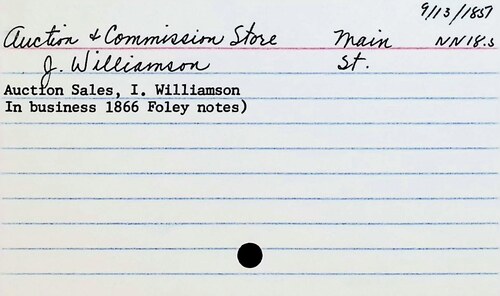 9/13/1857
Auction & Commission Store Main NN18.3
J. Williamson St.
Auction Sales, I. Williamson
In business 1866 Foley notes)